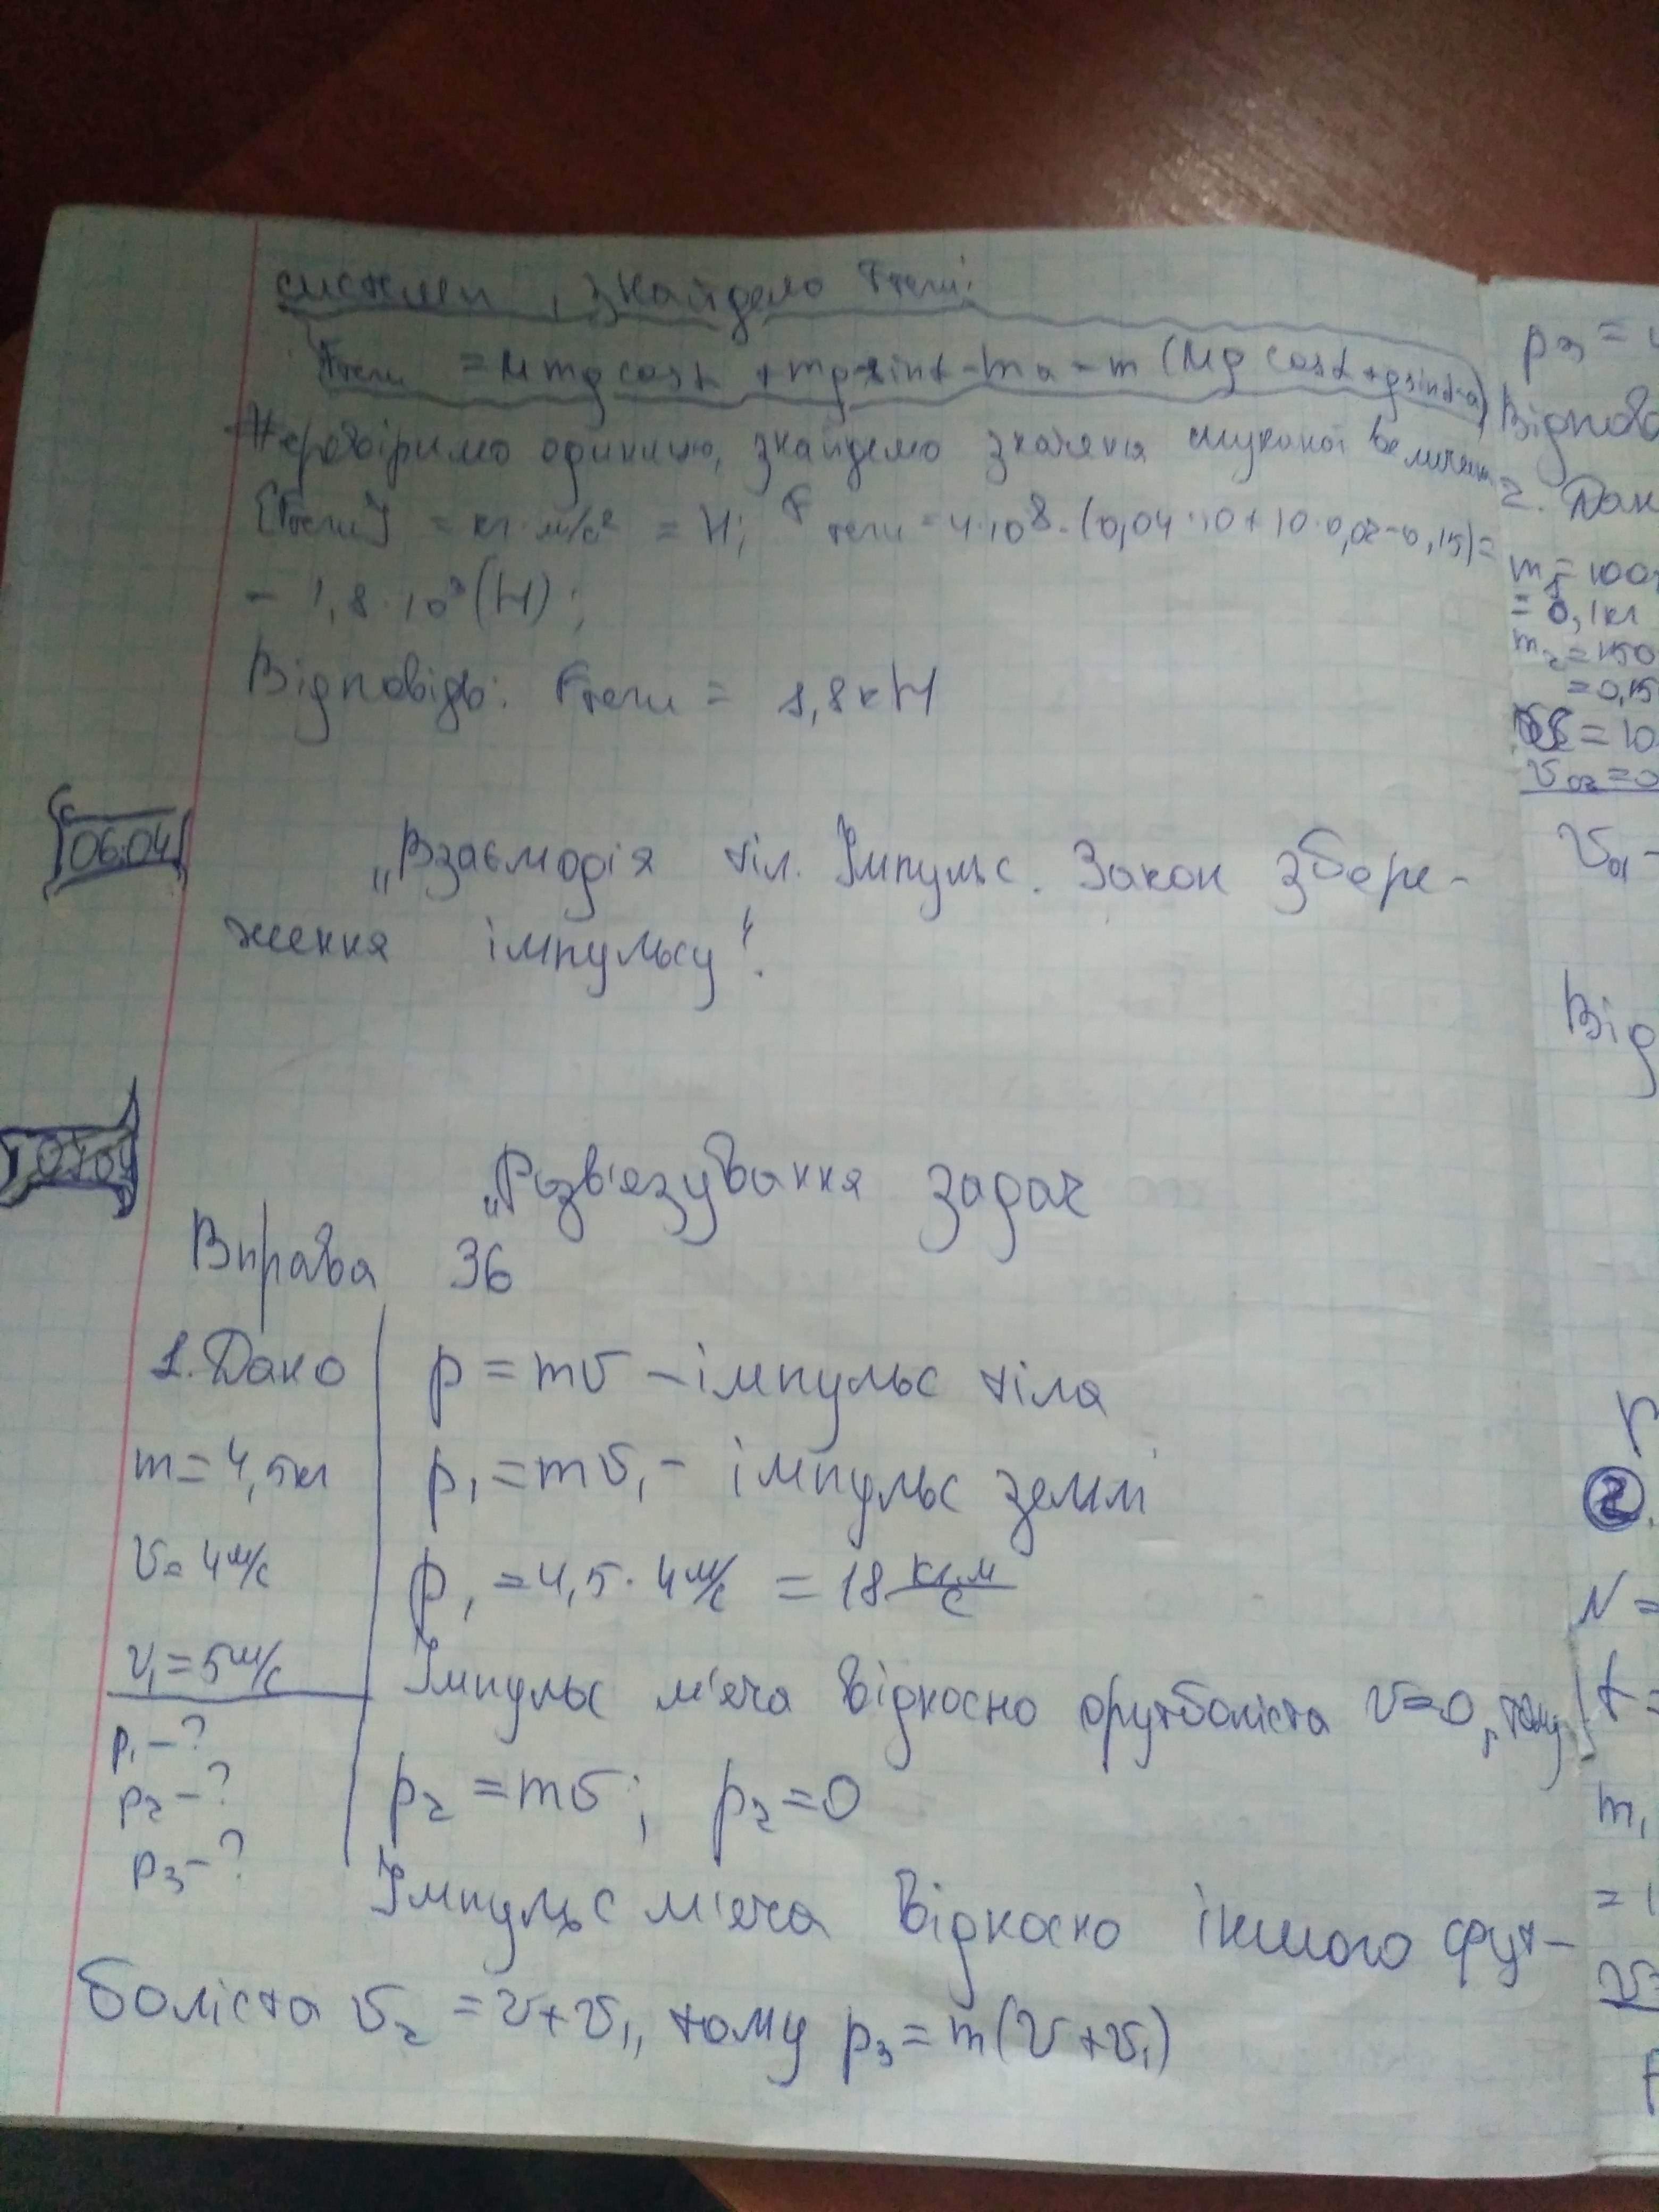 системи, знайдемо Fтяги:
Fтяги = μmg cosα + mg sinα - ma = m(μg cosα + g sinα - a)
Перевіримо одиницю, знайдемо значення шуканої величини
[Fтяги] = кг·м/с² = Н; Fтяги = 4·10⁸·(0,04·10+10·0,02-0,15)=
= 1,8·10³(Н);
Відповідь: Fтяги = 1,8кН
06.04
„Взаємодія тіл. Імпульс. Закон збере-
ження імпульсу".
07.04
„Розв'язування задач
Вправа 36
1. Дано
m = 4,5кг
v = 4м/с
v₁ = 5м/с
p₁ - ?
p₂ - ?
p₃ - ?
p = mv - імпульс тіла
p₁ = mv₁ - імпульс землі
p₁ = 4,5·4м/с = 18 кг·м/с
Імпульс м'яча відносно футболіста v=0, тому
p₂ = mv; p₂ = 0
Імпульс м'яча відносно іншого фут-
боліста v₂ = v+v₁, тому p₃ = m(v+v₁)
p₃ =
Відпов
2. Дан
m₁ = 100
= 0,1кг
m₂ = 150
= 0,15
= 10
v₀₂ = 0
v₀₁ -
Від
2.
N =
t =
m₁
= 1